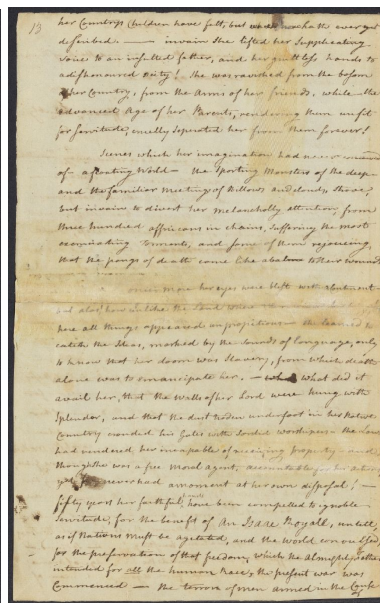 13
her Countrys Children have felt, but none hath ever yet
described. — in vain she lifted her supplicating
Voice to an insulted father, and her guiltless hands to
a dishonoured Deity! She was ravished from the bosom
of her Country, from the Arms of her friends, while the
advanced Age of her Parents, rendering them unfit
for servitude, cruelly seperated her from them forever!
Scenes which her imagination had never
of – a floating World – the sporting Monsters of the deep –
and the familiar meeting of Billows and clouds, strove,
but in vain to divert her melancholly attention, from
three hundred affricans in chains, suffering the most
excruciating torments; and some of them rejoiceing,
that the pangs of death came like a balm to their wounds
once more her eyes were blest with a Continent –
but alas! how unlike the Land where
here all things appeared unpropitious – she learned to
catch the Ideas, marked by the sounds of language, only
to know that her doom was Slavery, from which death
alone was to emancipate her. – What did it
avail her, that the walls of her Lord were hung with
Splendor, and that the dust troden underfoot in her Native
Country crowded his Gates with sordid worshipers – the Laws
had rendered her incapable of receiving property – and
though she was a free moral agent, accountable for her actions,
yet she never had a moment at her own disposal! –
fifty years her faithful hands have been compelled to ignoble
servitude, for the benefit of an Isaac Royall, untill,
as if Nations must be agitated, and the world convulsed,
for the preservation of that freedom, which the Almighty Father
intended for all the human Race, the present war was
Commenced – the terrors of men armed in the Cause
of